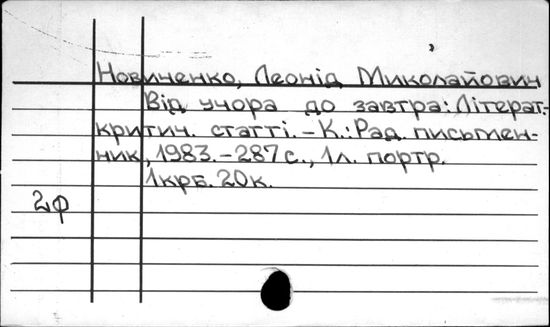 Новиченко, Леонід Миколайович
Від учора до завтра: Літерат.-
критич. статті. – К.: Рад. письмен-
ник, 1983. – 287 с., 1 л. портр.
1 крб. 20 к.
2ф